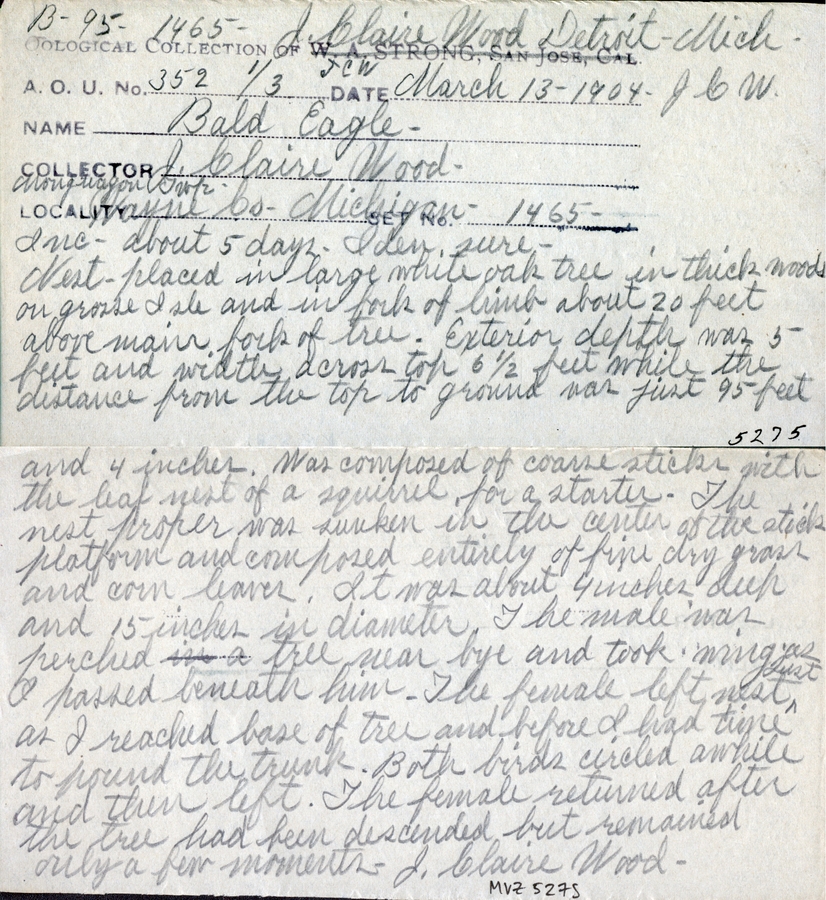 B-95- 1465- J. Claire Wood Detroit-Mich-
OOLOGICAL COLLECTION OF W. A. STRONG, SAN JOSE, CAL.
JCW
A. O. U. No. 352 1/3 DATE March 13-1904- J C W.
NAME Bald Eagle-
COLLECTOR J. Claire Wood-
Monguagon Twp-
LOCALITY Wayne Co- Michigan- SET No. 1465-
Inc- about 5 days- Iden. sure-
Nest-placed in large white oak tree in thick woods
on grosse Isle and in fork of limb about 20 feet
above main fork of tree. Exterior depth was 5
feet and width across top 6 1/2 feet while the
distance from the top to ground was just 95 feet
5275
and 4 inches. Was composed of coarse sticks with
the leaf nest of a squirrel for a starter- The
nest proper was sunken in the center of the stick
platform and composed entirely of fine dry grass
and corn leaves. It was about 4 inches deep
and 15 inches in diameter. The male was
perched in a tree near bye and took wing as
I passed beneath him- The female left nest just
as I reached base of tree and before I had time
to pound the trunk. Both birds circled awhile
and then left. The female returned after
the tree had been descended but remained
only a few moments- J. Claire Wood-
MVZ 5275